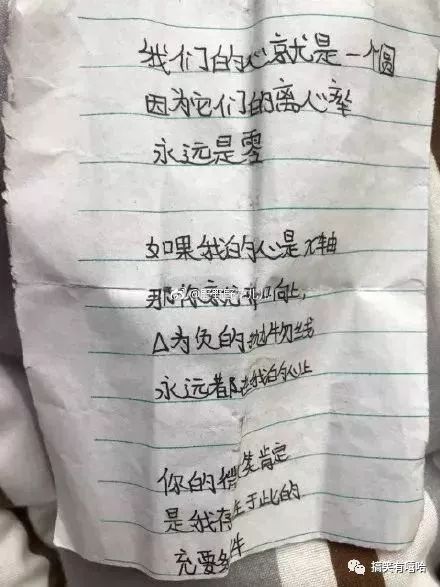 我们的心就是一个圆
因为它们的离心率
永远是零
如果我的心是x轴
那你就 口向上,
Δ为负的抛物线
永远都在我的心上
你的微笑肯定
是我存在于此的
充要条件
搞笑有嘻哈